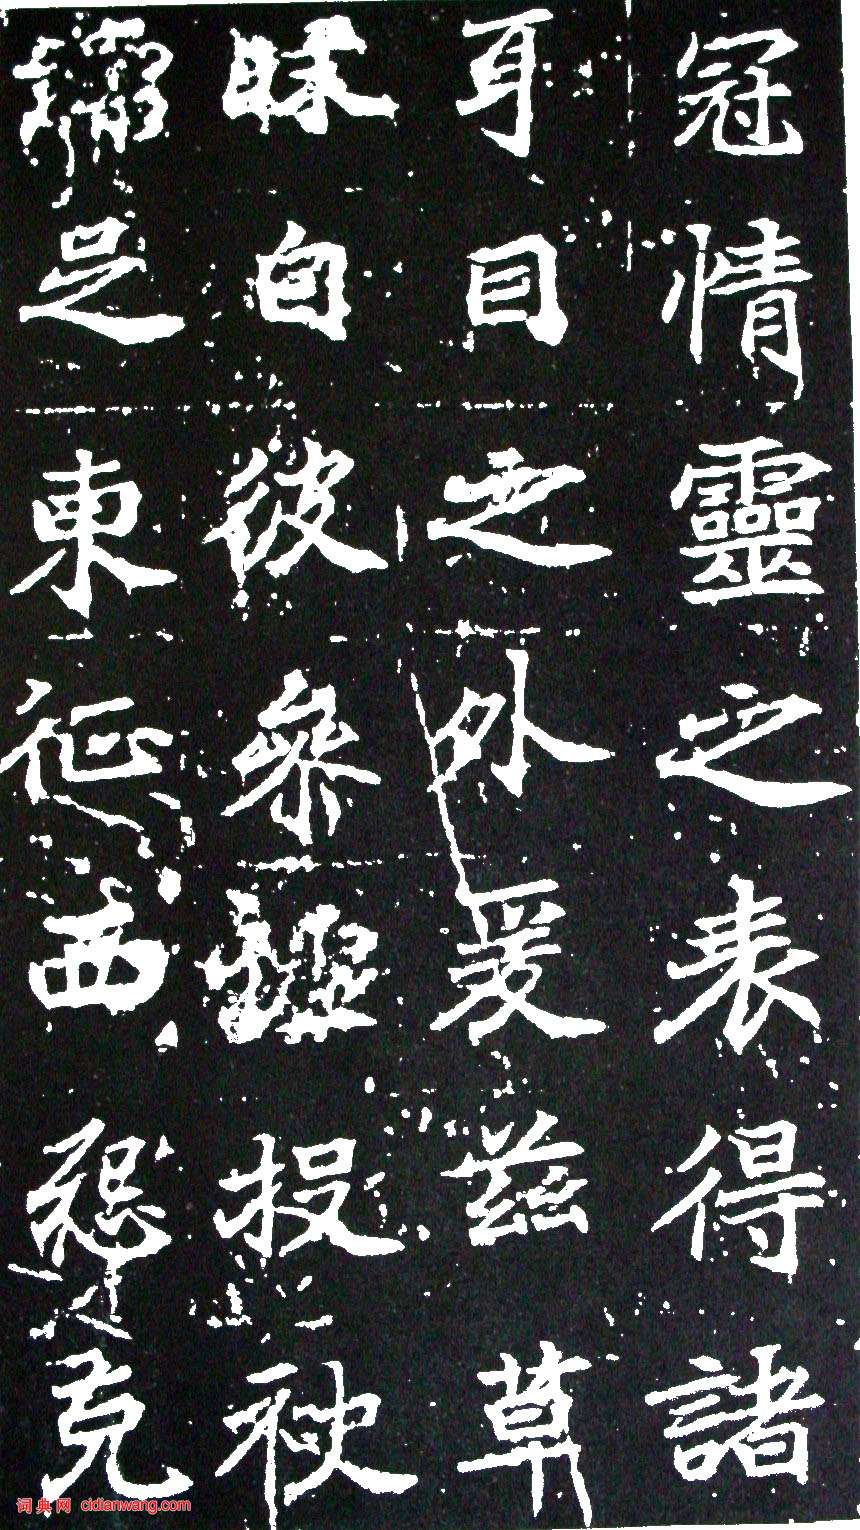 冠情靈之表得諸
耳目之外爰茲草
昧自彼參墟投袂
足東征西怨克
词典网 cidianwang.com